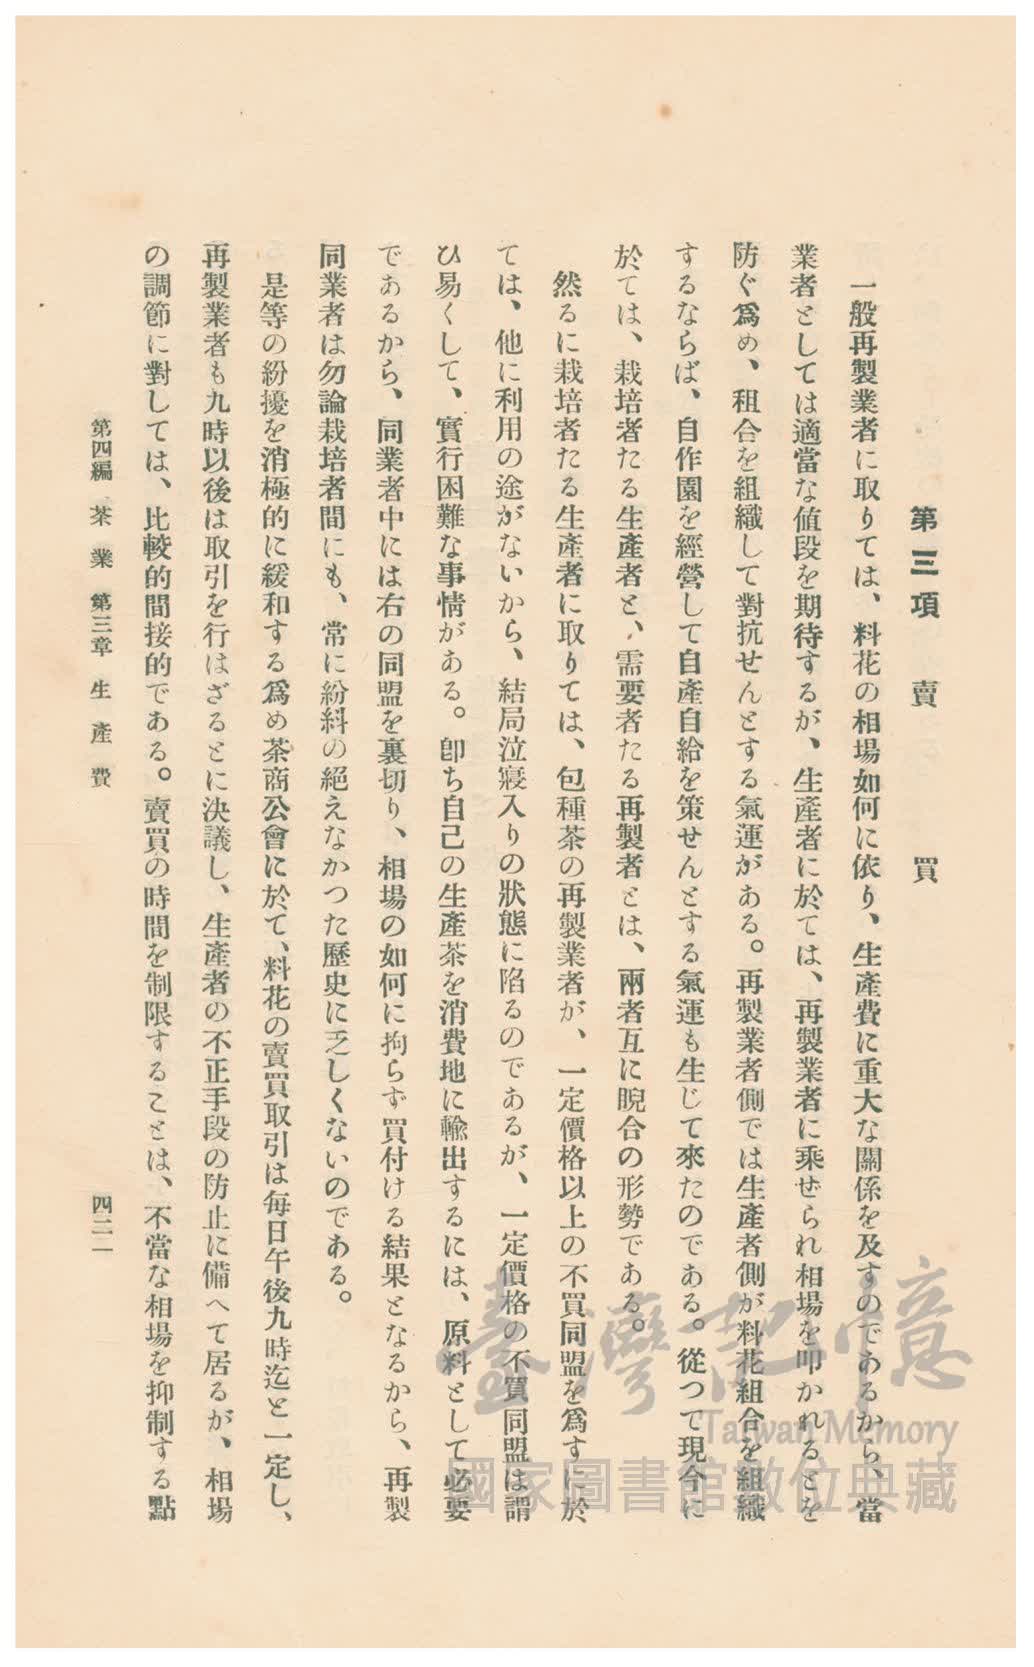 第三項　賣　　買
一般再製業者に取りては、料花の相場如何に依り、生產費に重大な關係を及すのであるから、當
業者としては適當な値段を期待するが、生產者に於ては、再製業者に乘せられ相場を叩かれるとを
防ぐ爲め、租合を組織して對抗せんとする氣運がある。再製業者側では生產者側が料花組合を組織
するならば、自作園を經營して自產自給を策せんとする氣運も生じて來たのである。從つて現今に
於ては、栽培者たる生產者と、需要者たる再製者とは、兩者互に睨合の形勢である。
然るに栽培者たる生產者に取りては、包種茶の再製業者が、一定價格以上の不買同盟を爲すに於
ては、他に利用の途がないから、結局泣寢入りの狀態に陷るのであるが、一定價格の不買同盟は謂
ひ易くして、實行困難な事情がある。卽ち自己の生產茶を消費地に輸出するには、原料として必要
であるから、同業者中には右の同盟を裏切り、相場の如何に拘らず買付ける結果となるから、再製
同業者は勿論栽培者間にも、常に紛糾の絕えなかつた歷史に乏しくないのである。
是等の紛擾を消極的に緩和する爲め茶商公會に於て、料花の賣買取引は每日午後九時迄と一定し、
再製業者も九時以後は取引を行はざるとに決議し、生產者の不正手段の防止に備へて居るが、相場
の調節に對しては、比較的間接的である。賣買の時間を制限することは、不當な相場を抑制する點
第四編　茶業　第三章　生產費　　四二一
臺灣記憶
Taiwan Memory
國家圖書館數位典藏